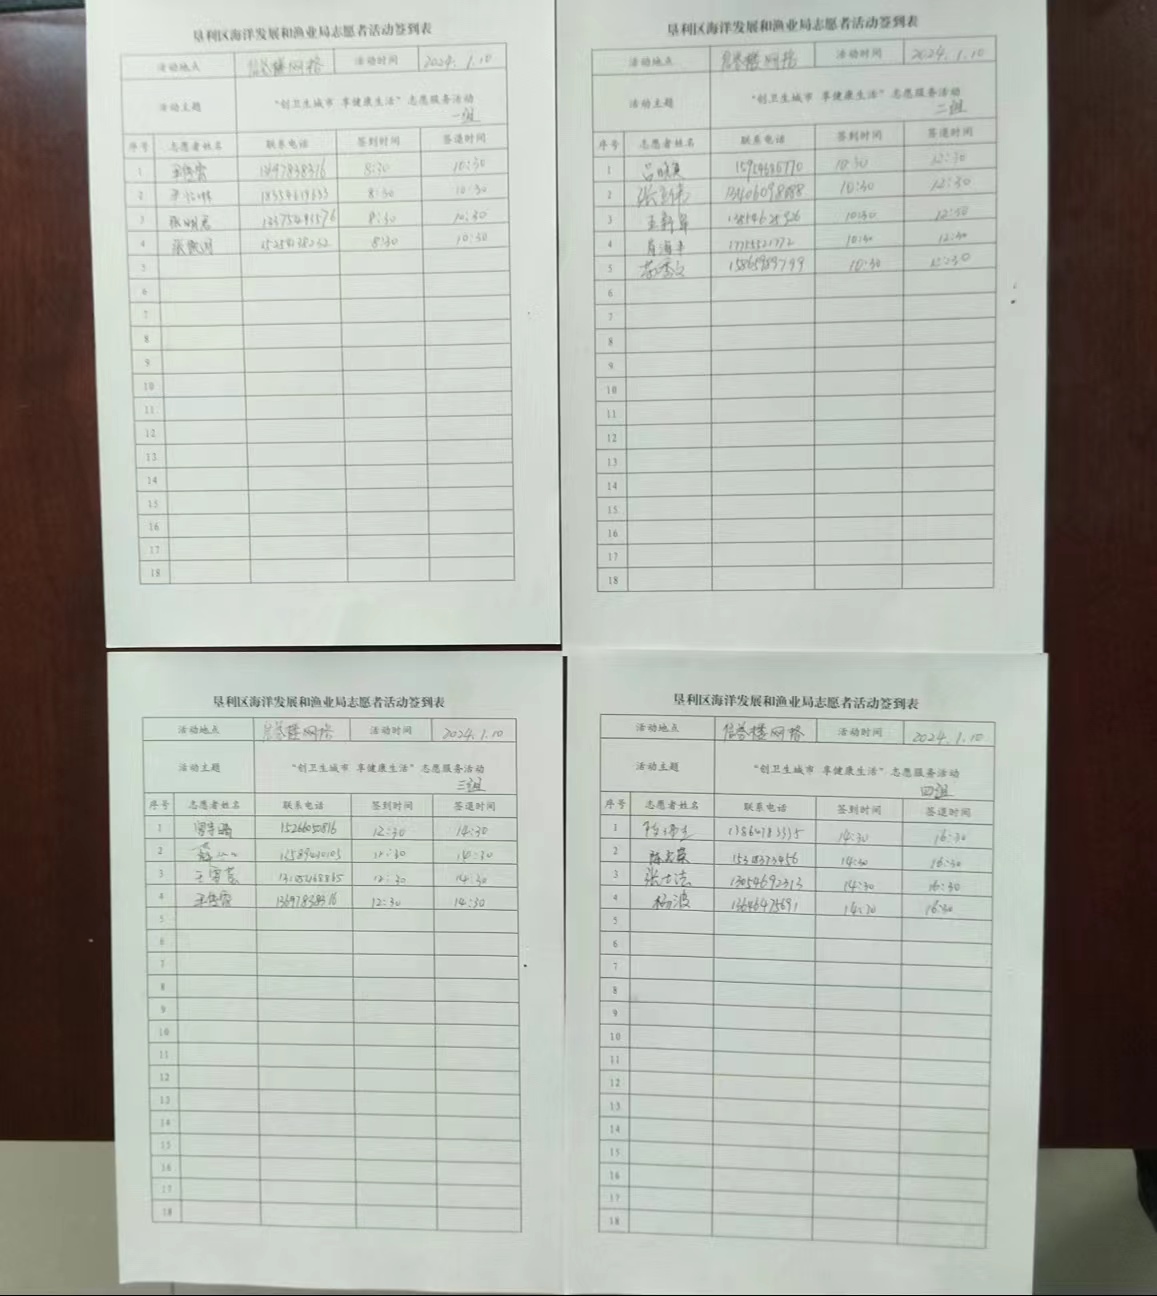 垦利区海洋发展和渔业局志愿者活动签到表
活动地点 信誉楼网格 活动时间 2024.1.10
活动主题 “创卫生城市 享健康生活”志愿服务活动
一组
序号 志愿者姓名 联系电话 签到时间 签退时间
1 8:30 10:30
2 8:30 10:30
3 张明君 8:30 10:30
4 8:30 10:30
5
6
7
8
9
10
11
12
13
14
15
16
17
18
垦利区海洋发展和渔业局志愿者活动签到表
活动地点 信誉楼网格 活动时间 2024.1.10
活动主题 “创卫生城市 享健康生活”志愿服务活动
二组
序号 志愿者姓名 联系电话 签到时间 签退时间
1 10:30 12:30
2 10:30 12:30
3 10:30 12:30
4 10:30 12:30
5 15865989799 10:30 12:30
6
7
8
9
10
11
12
13
14
15
16
17
18
垦利区海洋发展和渔业局志愿者活动签到表
活动地点 信誉楼网格 活动时间 2024.1.10
活动主题 “创卫生城市 享健康生活”志愿服务活动
三组
序号 志愿者姓名 联系电话 签到时间 签退时间
1 15266050816 12:30 14:30
2 12:30 14:30
3 12:30 14:30
4 12:30 14:30
5
6
7
8
9
10
11
12
13
14
15
16
17
18
垦利区海洋发展和渔业局志愿者活动签到表
活动地点 信誉楼网格 活动时间 2024.1.10
活动主题 “创卫生城市 享健康生活”志愿服务活动
四组
序号 志愿者姓名 联系电话 签到时间 签退时间
1 14:30 16:30
2 14:30 16:30
3 张士洁 13054692313 14:30 16:30
4 杨波 13646475691 14:30 16:30
5
6
7
8
9
10
11
12
13
14
15
16
17
18